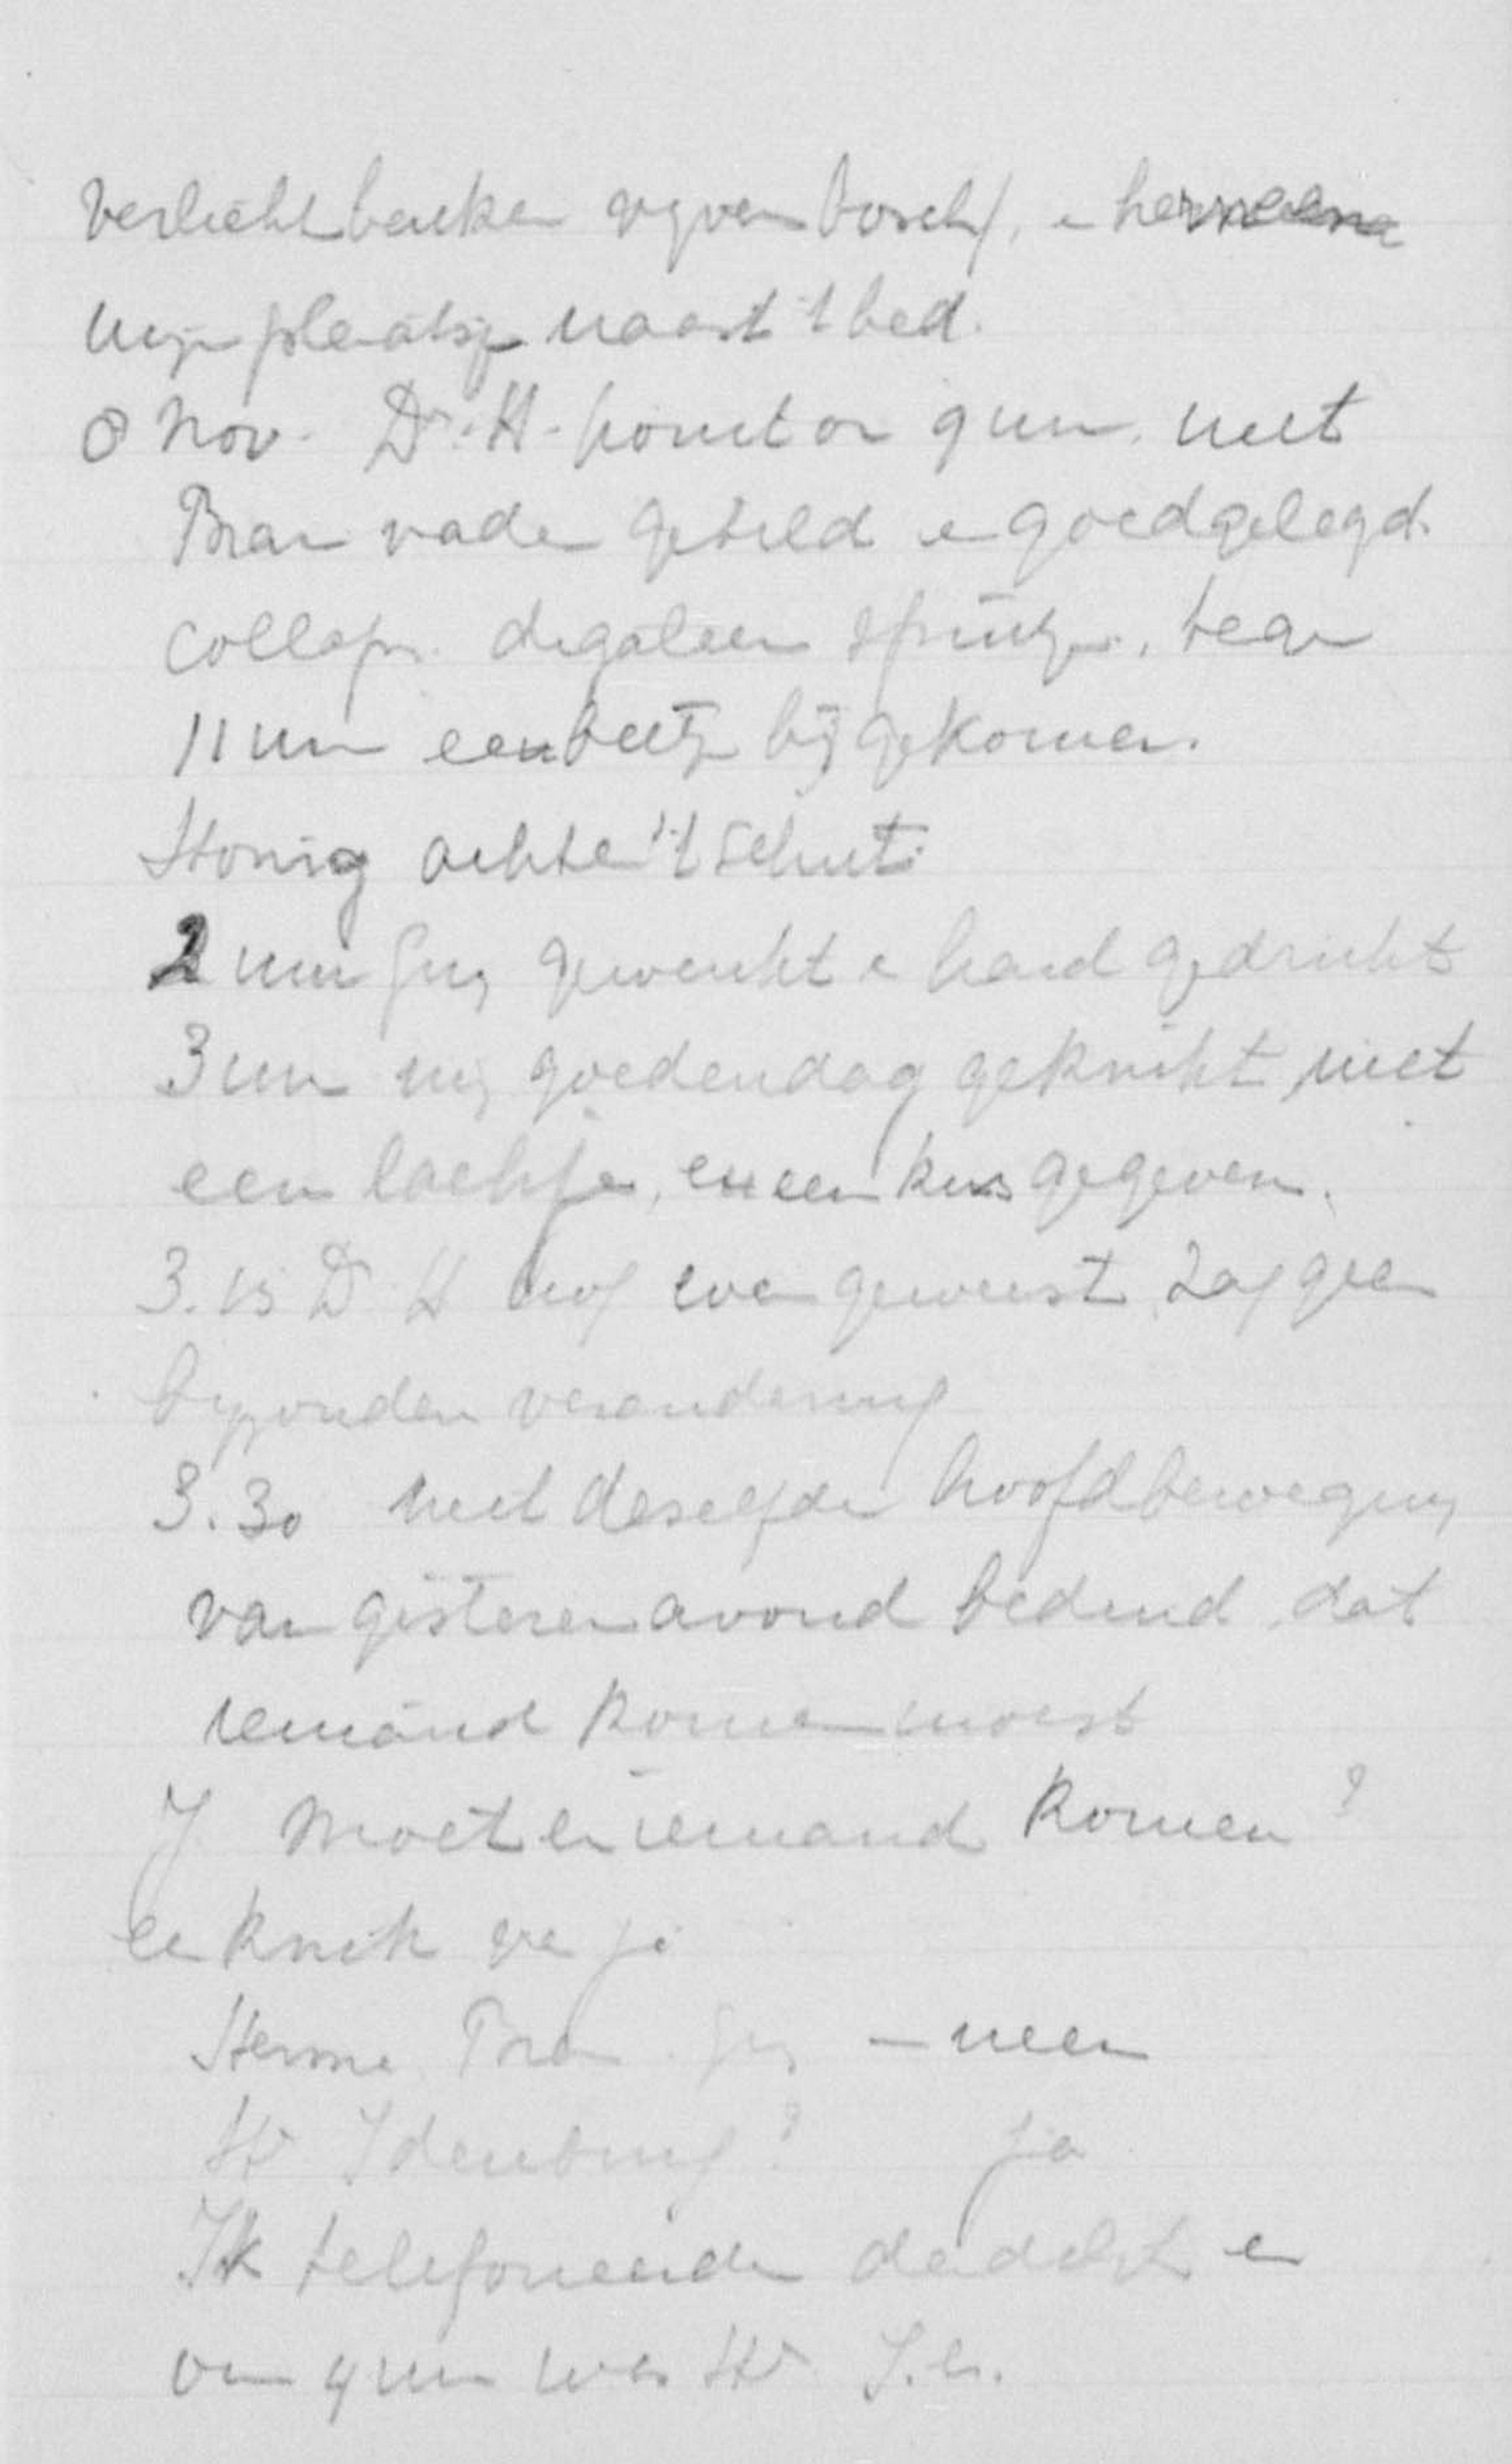 mijn plaatsje naast 't bed.
8 Nov. Dr. H. komt om 9 uur. met
Bram vader getild e goedgelegd.
collaps. digaleen
11 uur een beetje bijgekomen.
Honig achter 't schut.
2 uur Guy gewenkt e hand gedrukt
3 uur mij goedendag geknikt met
een lachje, en een kus gegeven.
3.15 Dr H nog even geweest, zag geen
bijzondere verandering
3.30 met dezelfde hoofdbeweging
van gisterenavond beduid, dat
iemand komen moest
J. Moet er iemand komen?
een knik va ja
Herma Bram Guy – neen
Hr Idenburg? ja
Ik telefoneerde dadelijk e
om 4 uur was Hr. I. er.